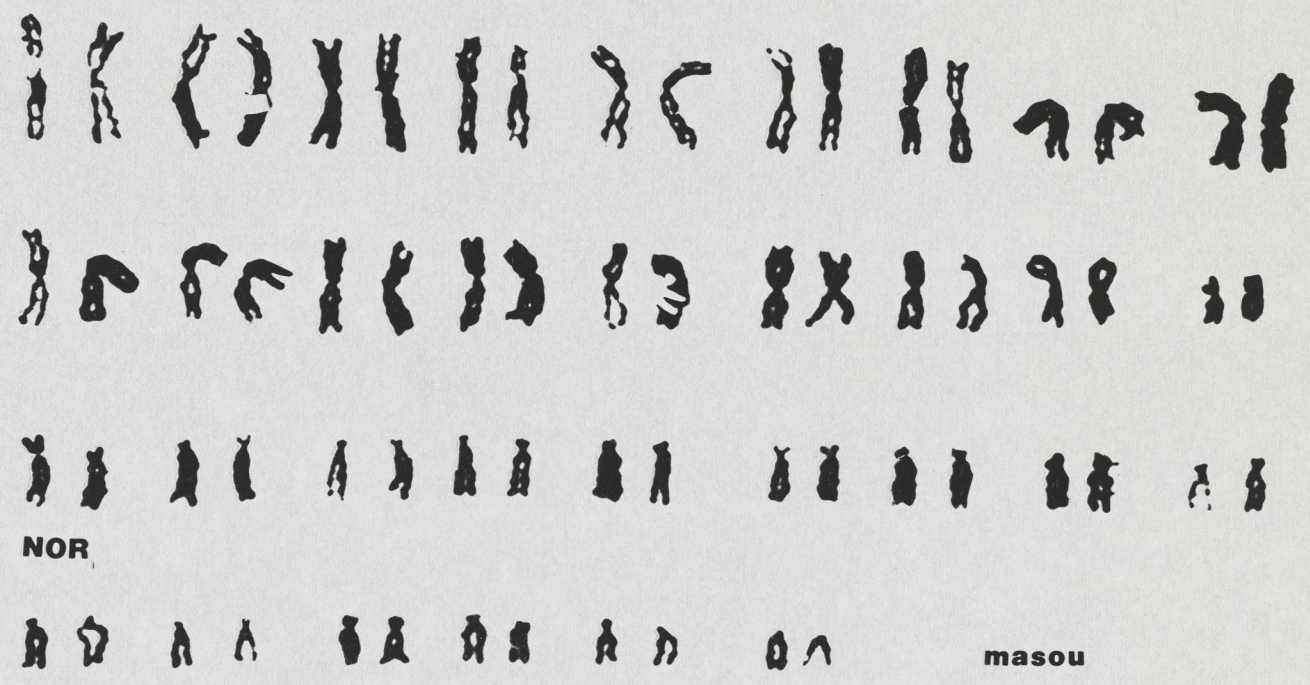 NOR
masou